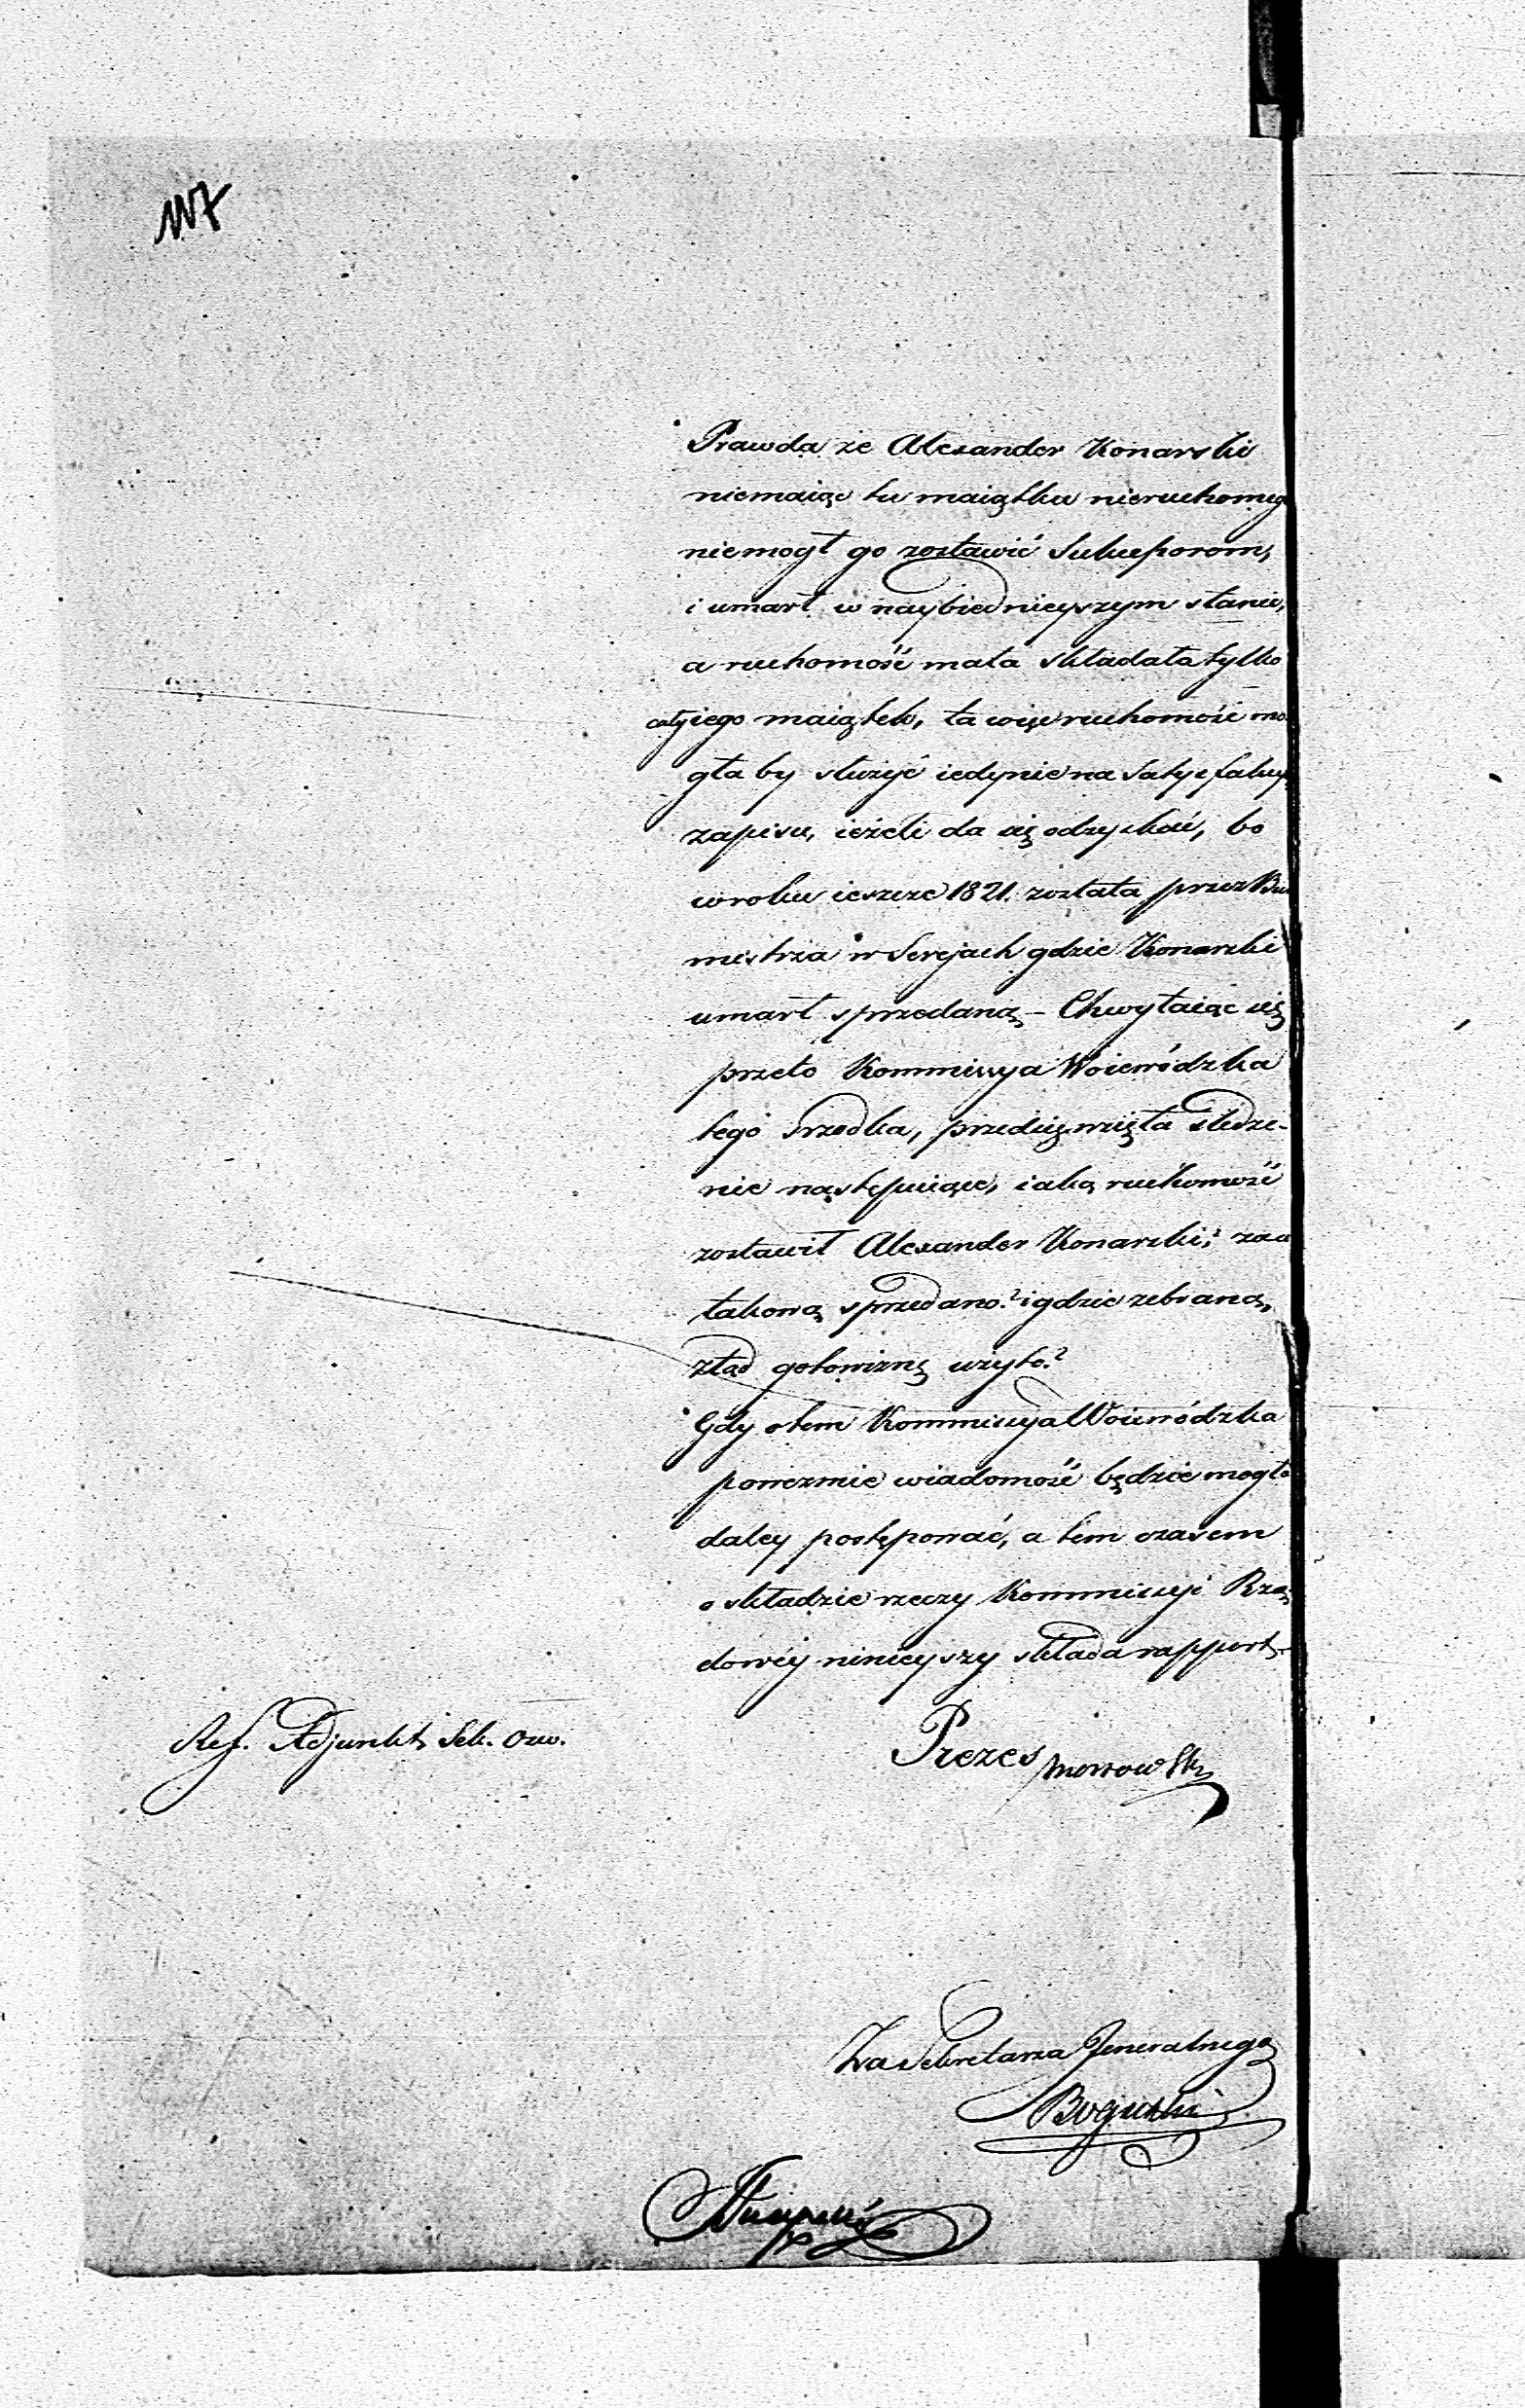 117
Prawda że Alexander Konarski
niemaiąc tu maiątku nieruchomego
niemogł go zostawić Sukcessorom,
i umarł w naybiednieyszym stanie,
a ruchomość mała składała tylko
cały iego maiątek, ta więc ruchomość mo
gła by służyć iedynie na Satysfakcyą
zapisu, ieżeli da się odzyskać, bo
w roku ieszcze 1821. została przez Bur
mistrza w Serejach gdzie Konarski
umarł sprzedaną – Chwytaiąc się
przeto Kommissya Woiewódzka
tego srzodka, przedsięwzięła śledze-
nie następuiące, iaką ruchomość
zostawił Alexander Konarski? za co
takową sprzedano? i gdzie zebraną
ztąd gotowiznę użyto?
Gdy o tem Kommissya Woiewódzka
poweźmie wiadomość będzie mogła
daley postępować, a tem czasem
o składzie rzeczy Kommissyi Rzą
dowéy ninieyszy składa rapport.
Ref. Adjunkt Sek. Ośw.
Prezes
Za Sekretarza Jeneralnego
Boguski